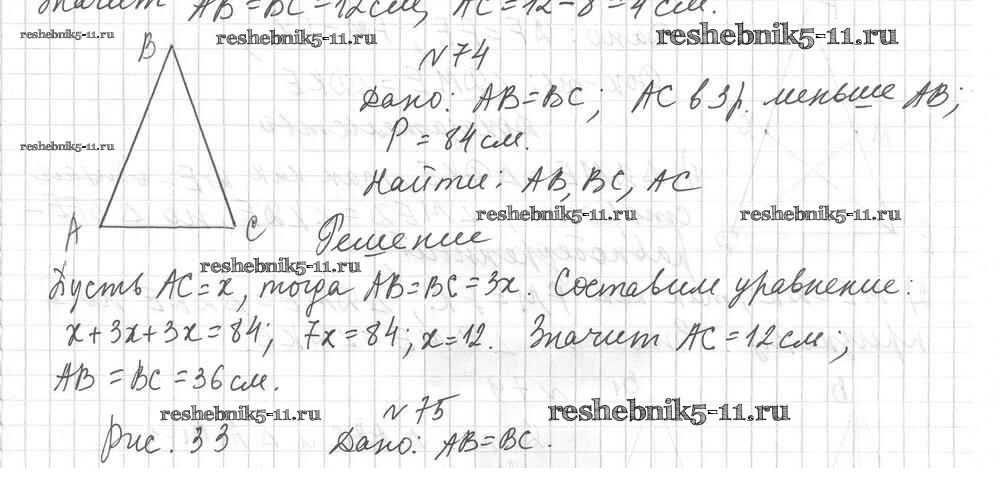 Значит AB=BC=12см, AC=12-8=4см.
reshebnik5-11.ru reshebnik5-11.ru reshebnik5-11.ru
B
N74
Дано: AB=BC; AC в 3 р. меньше AB;
P=84см.
reshebnik5-11.ru
Найти: AB, BC, AC
reshebnik5-11.ru reshebnik5-11.ru
A C
Решение
reshebnik5-11.ru
Пусть AC=x, тогда AB=BC=3x. Составим уравнение:
x+3x+3x=84; 7x=84; x=12. Значит AC=12см;
AB=BC=36см.
N75
reshebnik5-11.ru reshebnik5-11.ru
рис. 33 Дано: AB=BC.